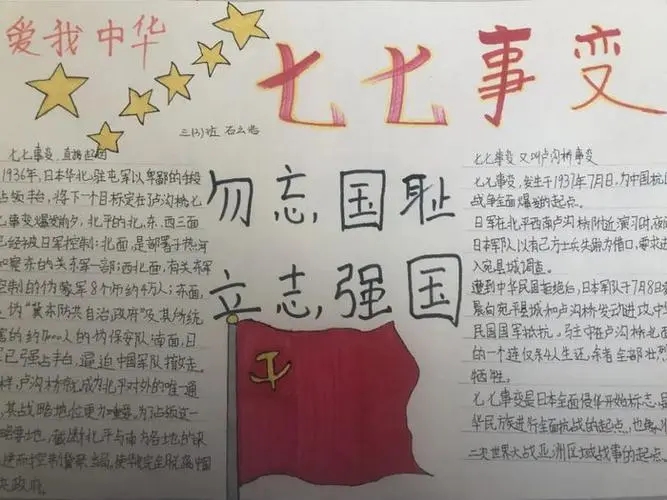 爱我中华
七七事变
三(3)班 石
勿忘国耻
立志强国
七七事变,直接起因
1936年,日本华北驻屯军以卑鄙的手段
占领丰台,将下一个目标定在卢沟桥七
七事变爆发前夕,北平的北、东、西三面
已经被日军控制:北面,是部署于热河
和察东的关东军一部;西北面,有关东军
控制的伪蒙军8个师约4万人;东面,
伪"冀东防共自治政府"及其伪统
的约17000人的伪保安队南面,日
已强占丰台,逼迫中国军队撤走。
样,卢沟桥就成为北平对外的唯一通
其战略地位更为重要。为了占领这一
略要地,截断北平与南方各地的
进而控制冀察当局,使华北完全脱离中国
央政府。
七七事变 又叫卢沟桥事变
七七事变,发生于1937年7月
战争全面爆发的起点。
日军在北平西南卢沟桥附近演习时,夜间
日本军队以有己方士兵失踪为借口,要求进
入宛县城调查。
遭到中华民国拒绝白,日本军队于7月8日
晨向宛平县城和卢沟桥发动进攻,中
民国国军抵抗。驻守在卢沟桥北面
的一个连仅余4人生还,余者全部壮烈
牺牲。
七七事变是日本全面侵华开始标志,是
华民族进行全面抗战的起点,也
二次世界大战亚洲区域战事的起点。